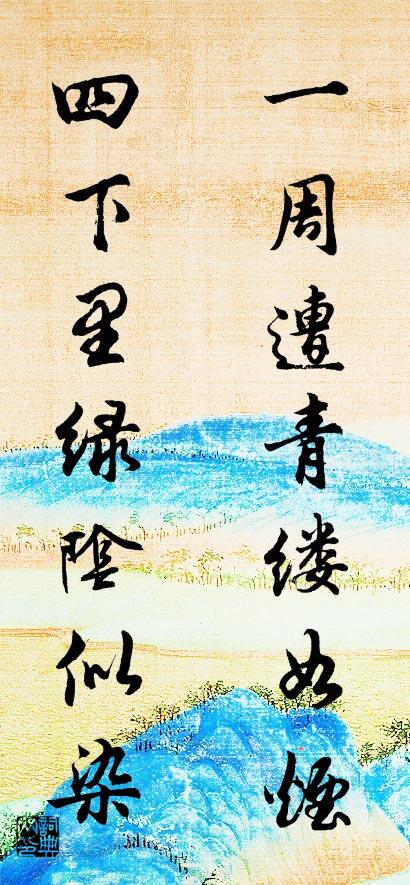 一周遭青缕如煙
四下里绿陰似染